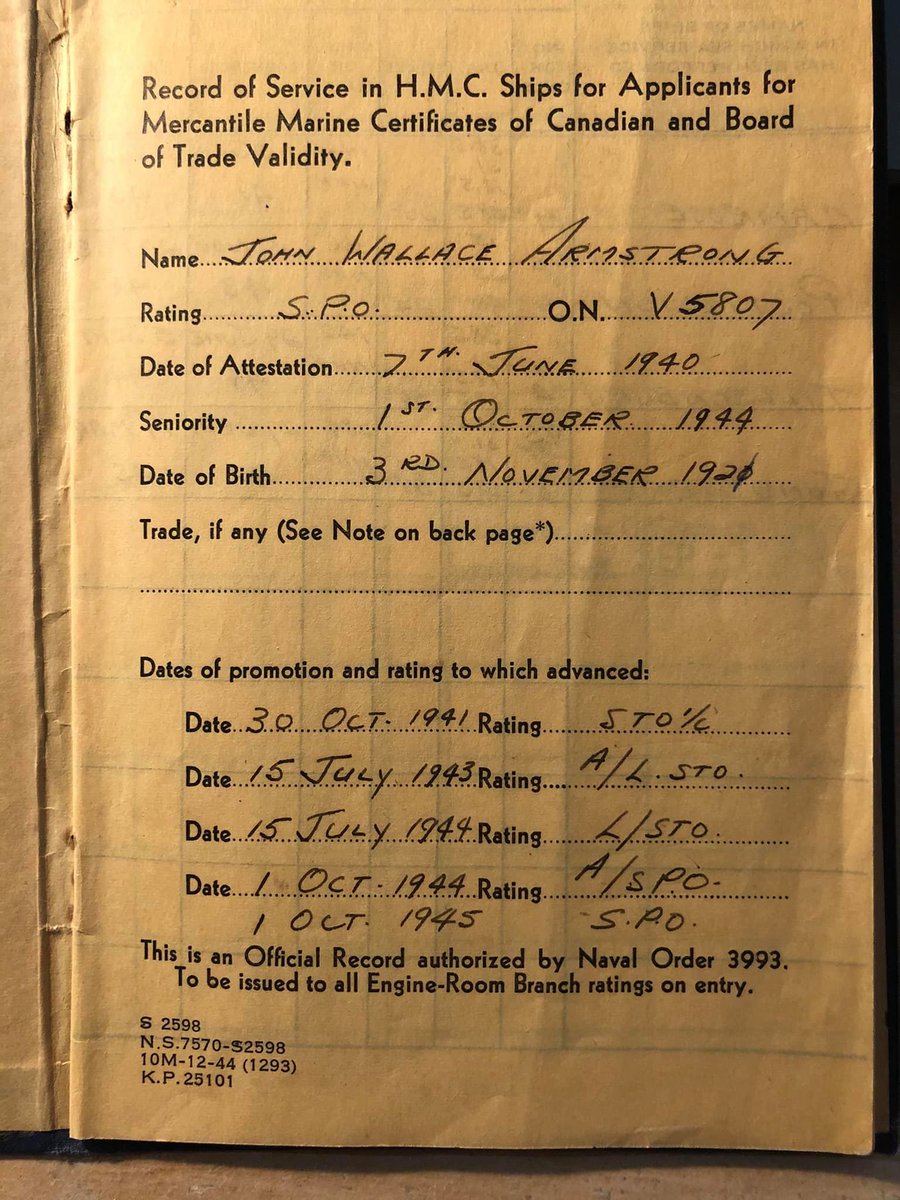 Record of Service in H.M.C. Ships for Applicants for
Mercantile Marine Certificates of Canadian and Board
of Trade Validity.
Name JOHN WALLACE ARMSTRONG
Rating S.P.O. O.N. V 5807
Date of Attestation 7TH. JUNE 1940
Seniority 1ST. OCTOBER 1944
Date of Birth 3RD. NOVEMBER
Trade, if any (See Note on back page*)
Dates of promotion and rating to which advanced:
Date 30 OCT. 1941 Rating STO 1/c
Date 15 JULY 1943 Rating A/L. STO.
Date 15 JULY 1944 Rating L/STO.
Date 1 OCT. 1944 Rating A/S.P.O.
1 OCT. 1945 S.P.O.
This is an Official Record authorized by Naval Order 3993.
To be issued to all Engine-Room Branch ratings on entry.
S 2598
N.S.7570-S2598
10M-12-44 (1293)
K.P.25101